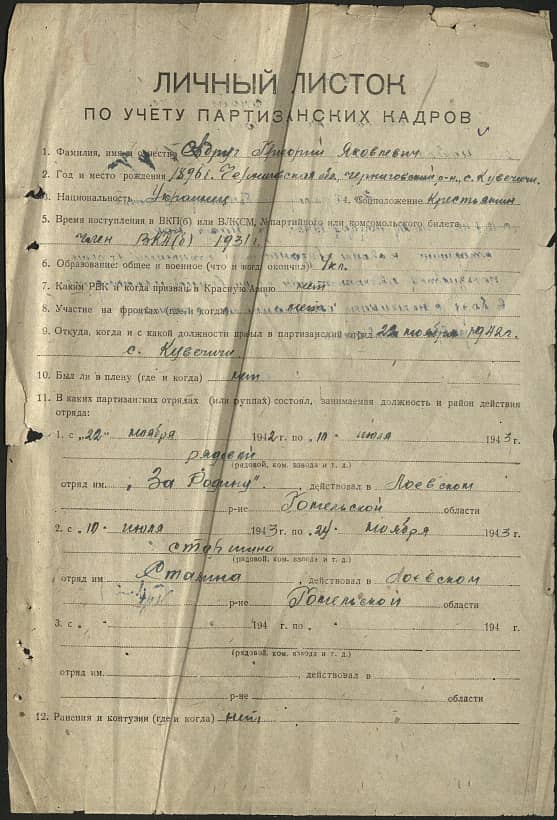 ЛИЧНЫЙ ЛИСТОК
ПО УЧЕТУ ПАРТИЗАНСКИХ КАДРОВ
1. Фамилия, имя и отчество Григорий Яковлевич
2. Год и место рождения 1896 г. Черниговская обл., Черниговский р-н, с. Кувечичи
3. Национальность Украинец 4. Соцположение Крестьянин
5. Время поступления в ВКП(б) или ВЛКСМ, № партийного или комсомольского билета
член ВКП(б) 1931 г.
6. Образование: общее и военное (что и когда окончил) 1 кл.
7. Каким РВК и когда призван в Красную Армию нет
8. Участие на фронтах (где и когда) нет
9. Откуда, когда и с какой должности прибыл в партизанский отряд 22 ноября 1942 г.
с. Кувечичи
10. Был ли в плену (где и когда) нет
11. В каких партизанских отрядах (или группах) состоял, занимаемая должность и район действия
отряда:
1. с „22" ноября 1942 г. по „10" июля 1943 г.
рядовой
(рядовой, ком. взвода и т. д.)
отряд им. „За Родину", действовал в Лоевском
р-не Гомельской области
2. с „10" июля 1943 г. по „24" ноября 1943 г.
старшина
(рядовой, ком. взвода и т. д.)
отряд им Сталина, действовал в Лоевском
р-не Гомельской области
3. с „ " 194 г. по „ " 194 г.
(рядовой, ком. взвода и т. д.)
отряд им. действовал в
р-не области
12. Ранения и контузии (где и когда) нет